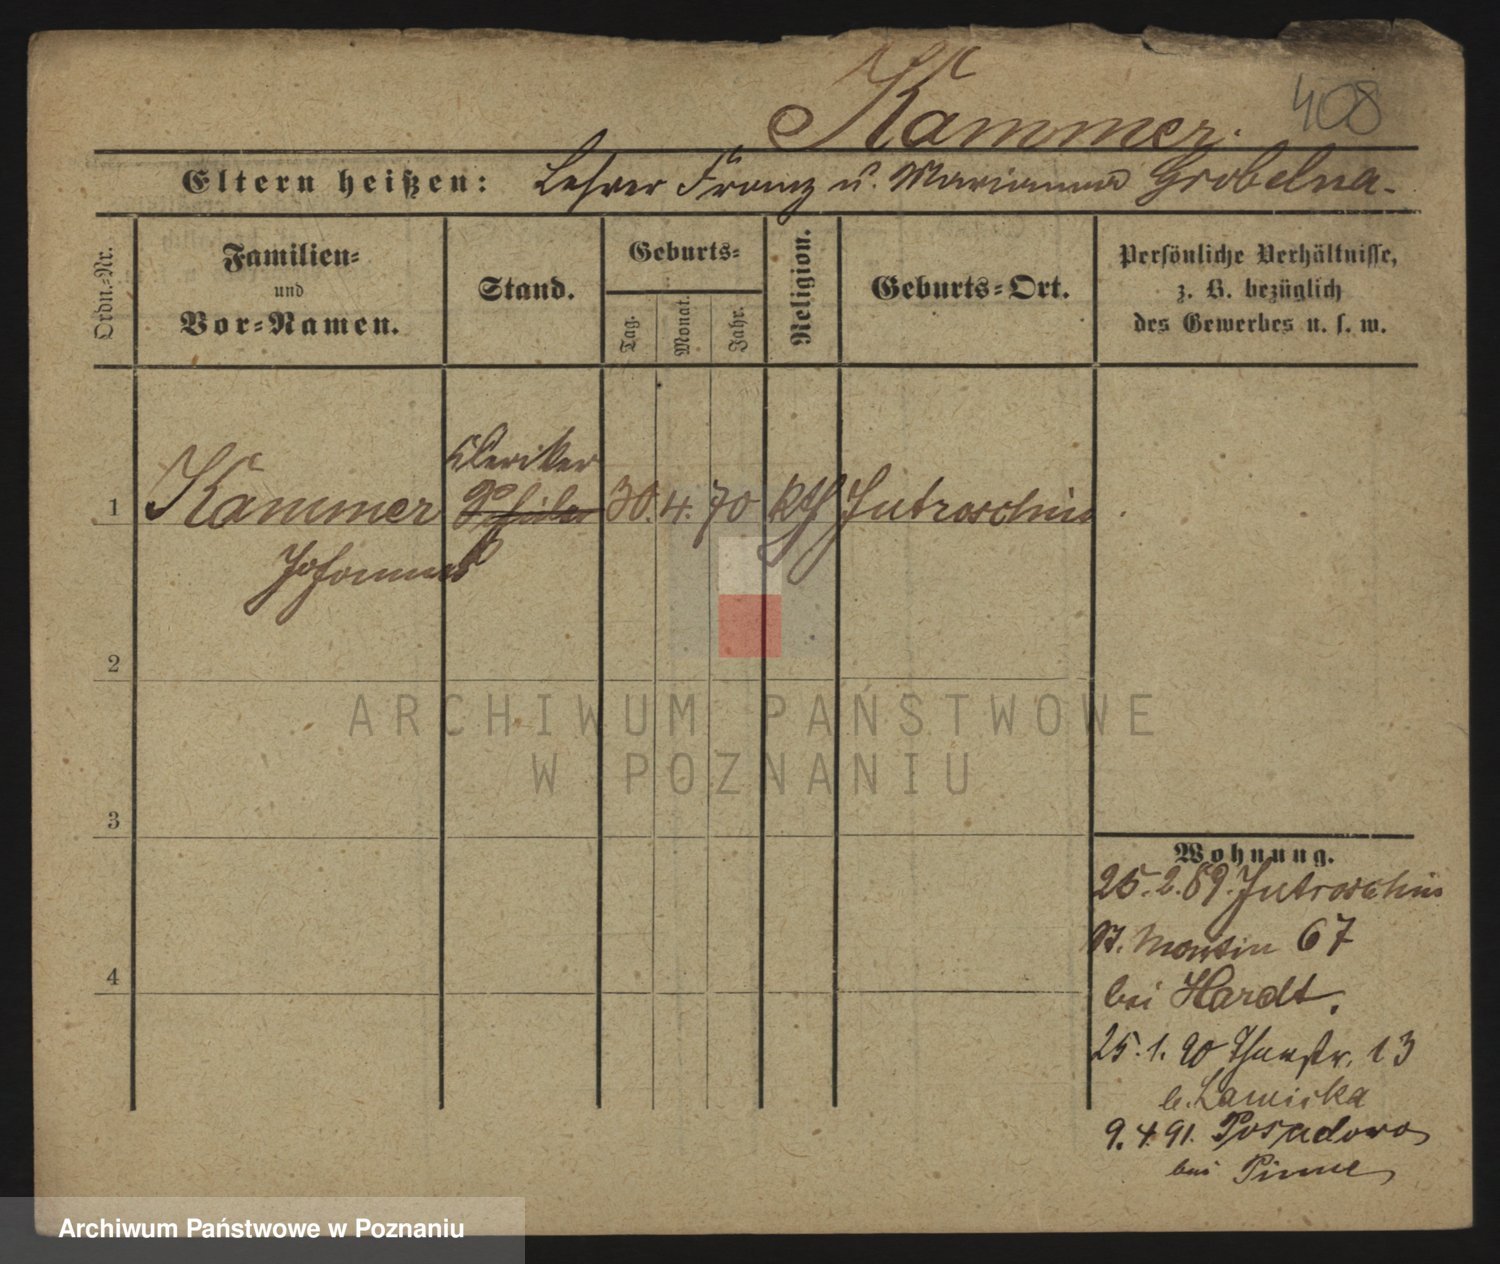 408
Kammer.
Eltern heißen: Lehrer Franz u. Marianna Grobelna-
Ordn.-Nr.
Familien-
und
Vor-Namen.
Stand.
Geburts-
Tag.
Monat.
Jahr.
Religion.
Geburts-Ort.
Persönliche Verhältnisse,
z. B. bezüglich
des Gewerbes u. s. w.
Cleriker
1 Kammer Schüler 30. 4. 70 kth Jutroschin
Johannes
2
3
4
Wohnung.
25.2.89. Jutroschin
St. Martin 67
bei Hardt.
25.1.90 13
b.
9.4.91. Posadowo
bei Pinne
ARCHIWUM PAŃSTWOWE
W POZNANIU
Archiwum Państwowe w Poznaniu